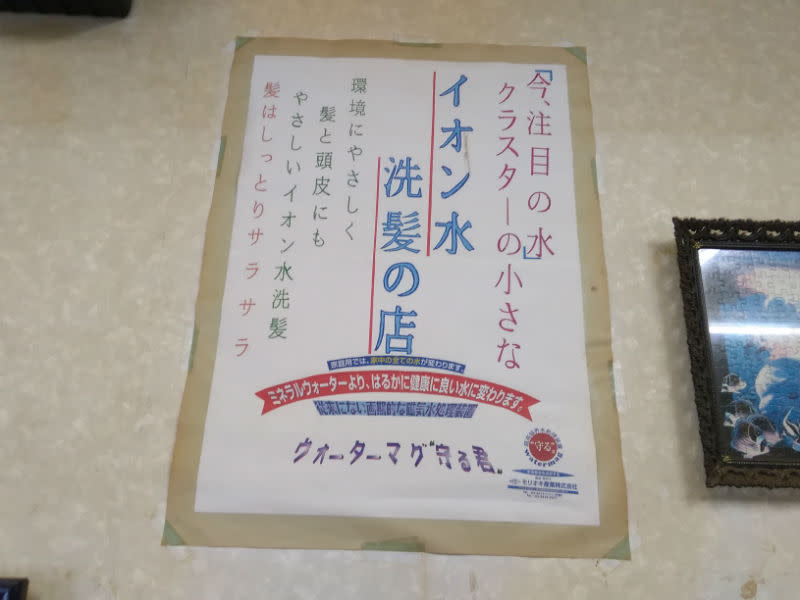 「今、注目の水」
クラスターの小さな
イオン水
洗髪の店
環境にやさしく
髪と頭皮にも
やさしいイオン水洗髪
髪はしっとりサラサラ
家庭用では、家中の全ての水が変わります。
ミネラルウォーターより、はるかに健康に良い水に変わります。
従来にない画期的な磁気水処理装置
ウォーターマグ“守る君”
“守る”
watermag
モリオキ産業株式会社